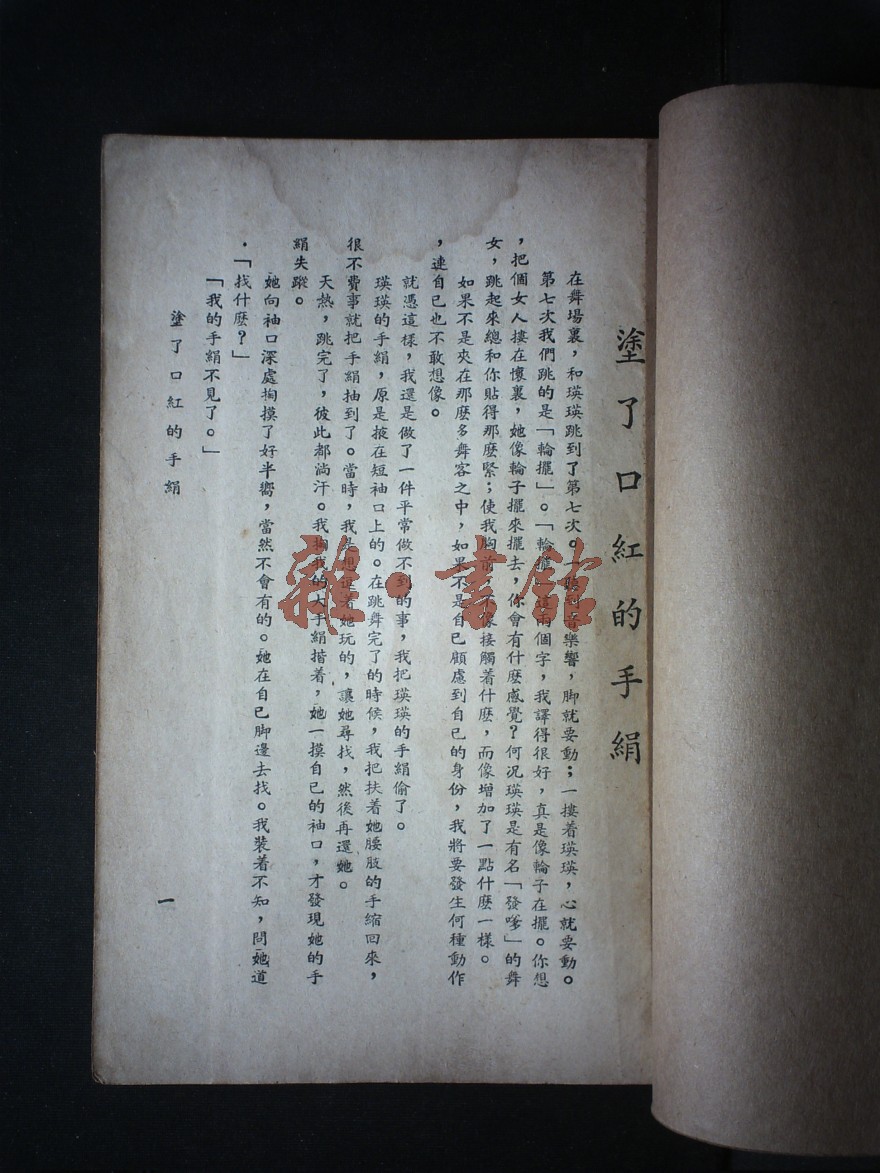 塗了口紅的手絹
在舞場裏，和瑛瑛跳到了第七次。一聽到音樂響，脚就要動；一摟着瑛瑛，心就要動。
第七次我們跳的是「輪擺」。「輪擺」這兩個字，我譯得很好，真是像輪子在擺。你想
，把個女人摟在懷裏，她像輪子擺來擺去，你會有什麽感覺？何況瑛瑛是有名「發嗲」的舞
女，跳起來總和你貼得那麽緊；使我胸前，不像接觸着什麽，而像增加了一點什麽一樣。
如果不是夾在那麽多舞客之中，如果不是自己顧慮到自己的身份，我將要發生何種動作
，連自己也不敢想像。
就憑這樣，我還是做了一件平常做不到的事，我把瑛瑛的手絹偷了。
瑛瑛的手絹，原是掖在短袖口上的。在跳舞完了的時候，我把扶着她腰肢的手縮回來，
很不費事就把手絹抽到了。當時，我是想逗着她玩的，讓她尋找，然後再還她。
天熱，跳完了，彼此都淌汗。我掏我的大手絹揩着，她一摸自己的袖口，才發現她的手
絹失蹤。
她向袖口深處掏摸了好半嚮，當然不會有的。她在自己脚邊去找。我裝着不知，問她道
．「找什麽？」
「我的手絹不見了。」
塗了口紅的手絹
一
雜·書館